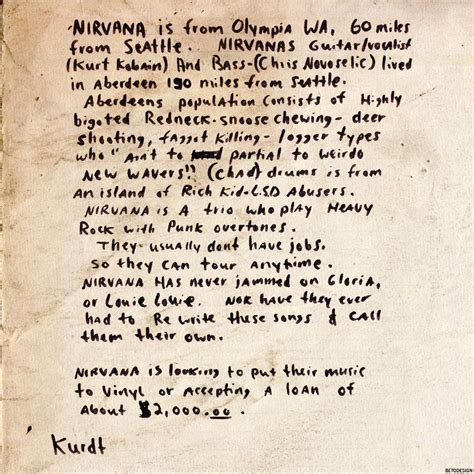 NIRVANA is from Olympia WA, 60 miles
from Seattle. NIRVANAS Guitar/vocalist
(Kurt Kobain) And Bass-(Chris Novoselic) lived
in Aberdeen 190 miles from Seattle.
Aberdeens population consists of Highly
bigoted Redneck-snoose chewing-deer
shooting, faggot killing-logger types
who "aint to partial to weirdo
New WAVERS!! (chad) drums is from
an island of Rich Kid-LSD Abusers.
NIRVANA is A trio who play HEAVY
Rock with Punk overtones.
They usually dont have jobs.
So they can tour anytime.
NIRVANA HAS never jammed on Gloria,
or Louie Louie. Nor have they ever
had to Re write these songs & CALL
them their own.
NIRVANA is looking to put their music
to vinyl or Accepting A loan of
About $2,000.00.
Kurdt
BETODESIGN